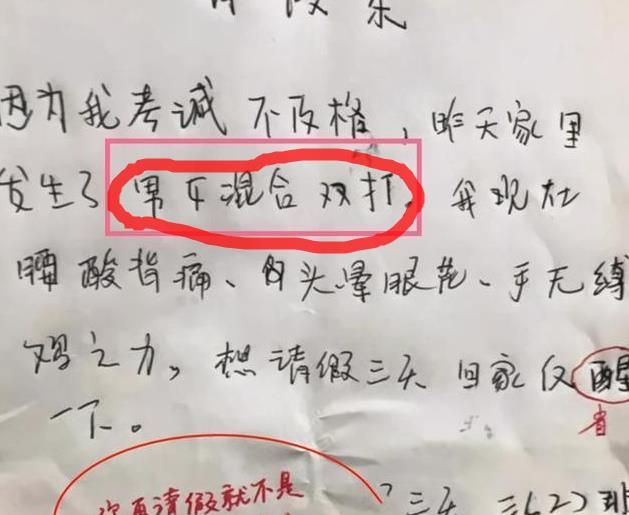 因为我考诚不及格，昨天家里
发生了男女混合双打。我现在
腰酸背痛、头晕眼花、手无缚
鸡之力，想请假三天回家仅醒
省
一下。
次再请假就不是
三天 三(2)班